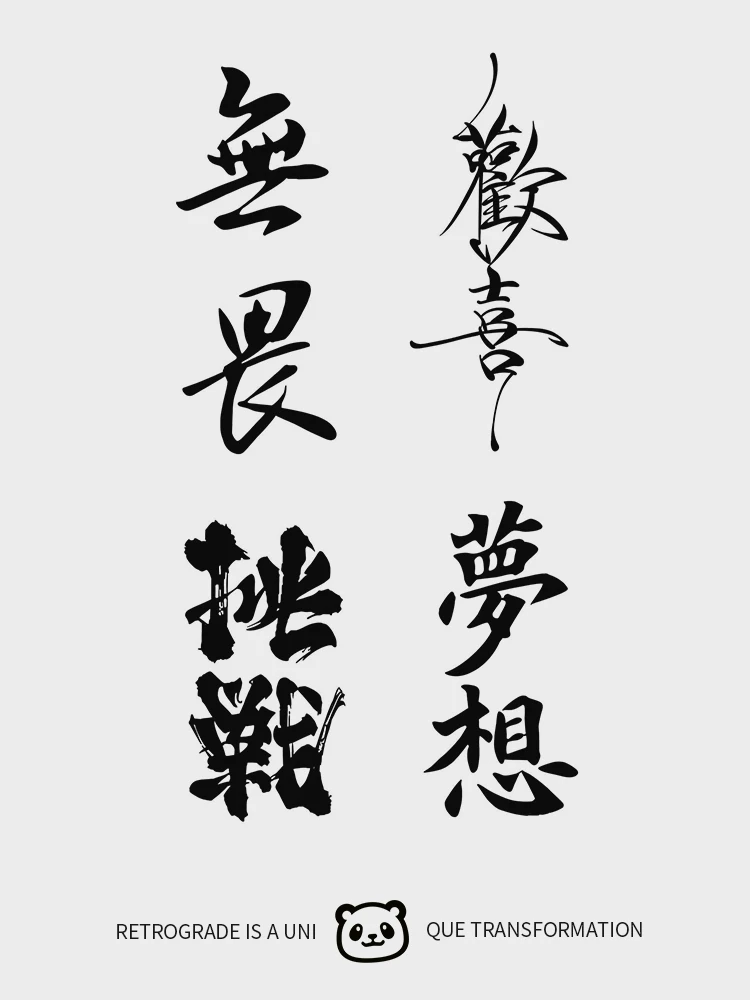 歡喜
無畏
夢想
挑戰
RETROGRADE IS A UNI QUE TRANSFORMATION